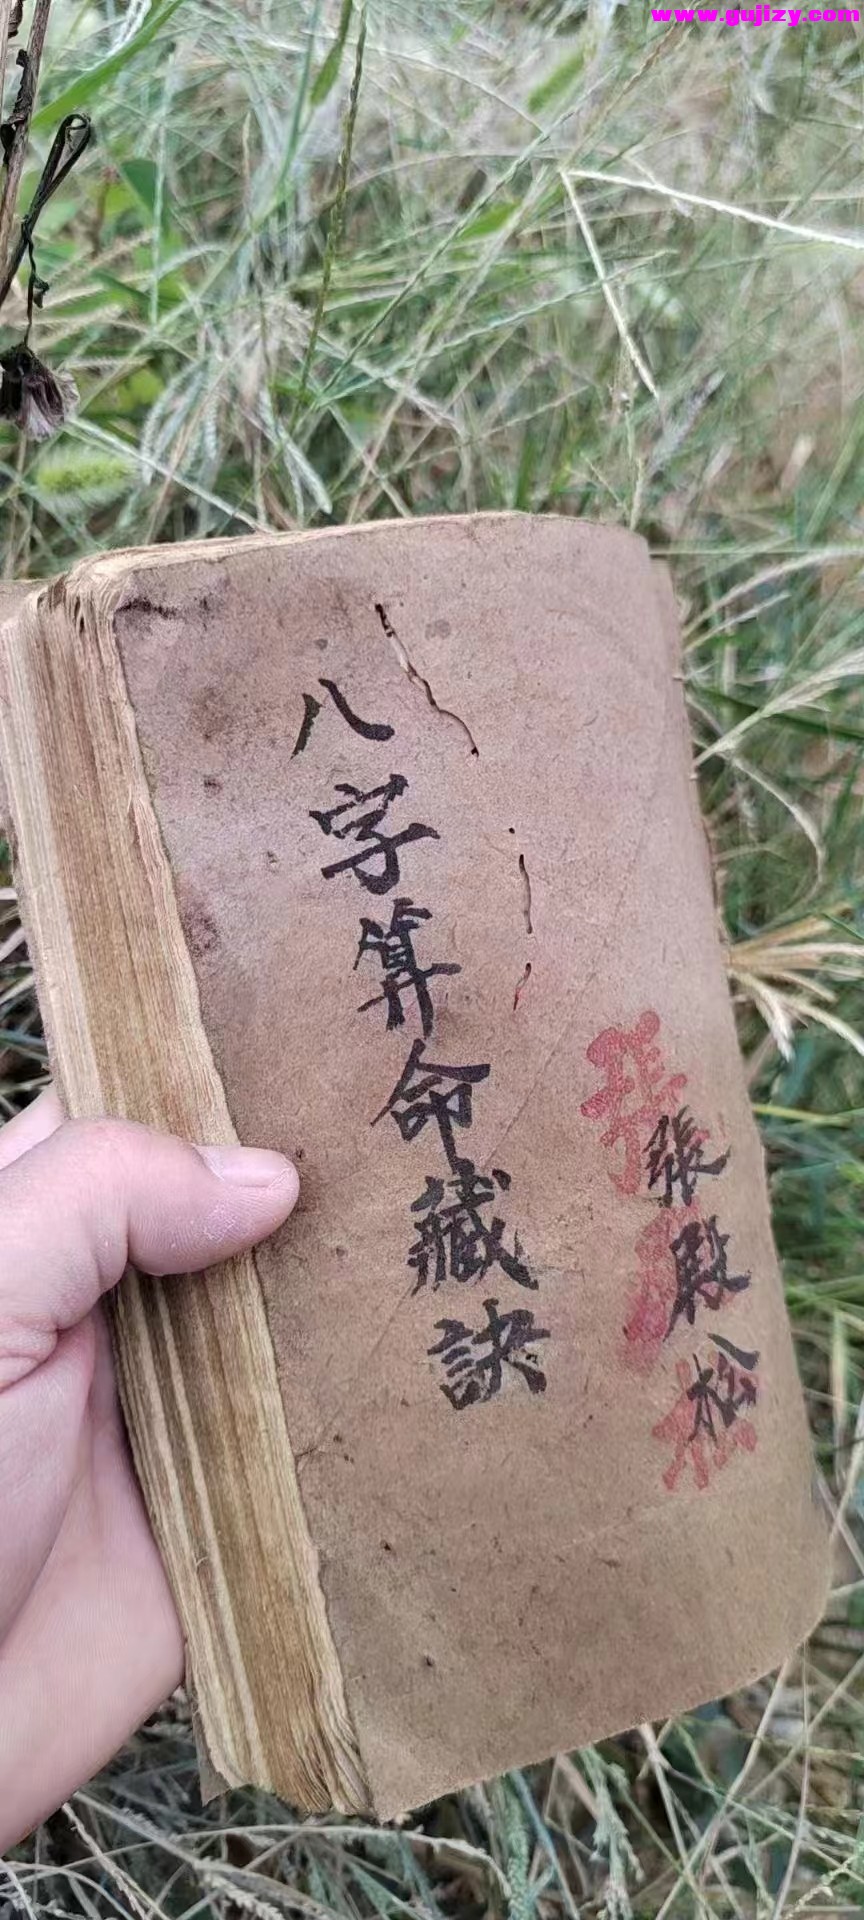 www.gujizy.com
八字算命藏訣
張殿松
張
松